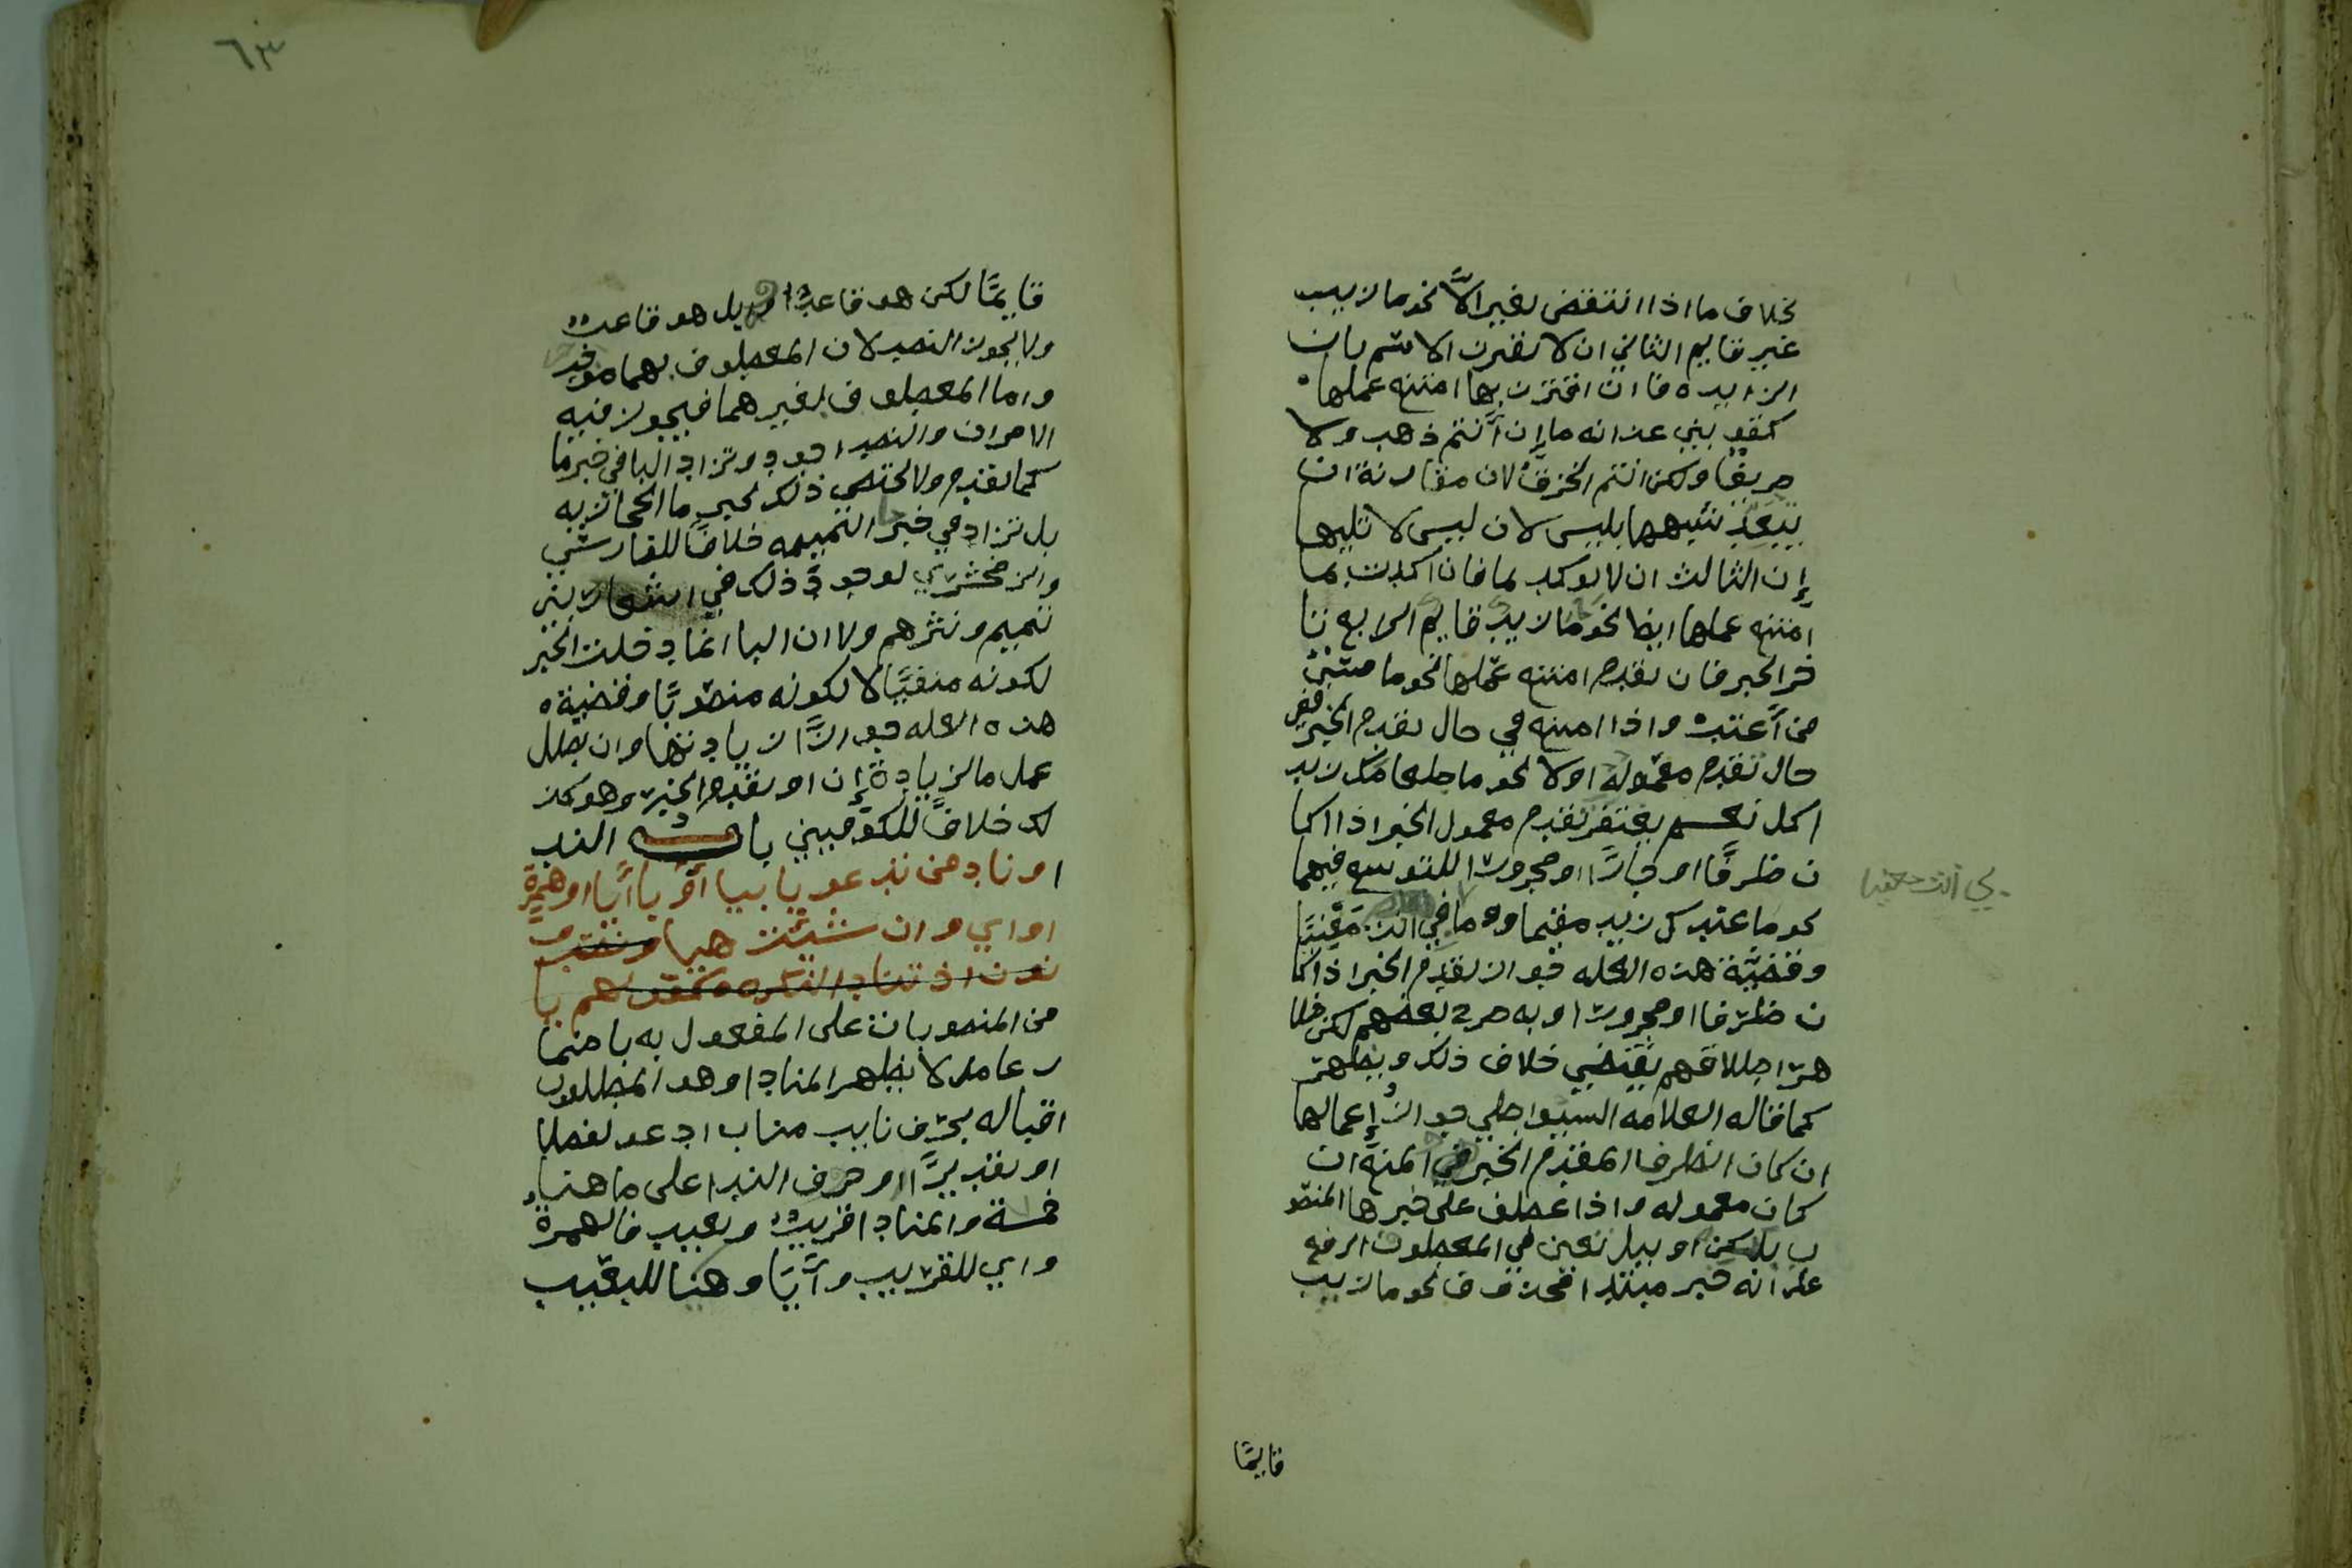 بخلاف ما اذا انتقض بغير الاّ نحو ما زيد
غير قايم الثاني ان لا يقترن الاسم بان
الزايده فان اقترن بها امتنع عملها
كقوله بني غدانه ما إن أنتم ذهب ولا
صريفا ولكن انتم الخزف لان مقارنة ان
تبعد شبهها بليس لان ليس لا تليها
إن الثالث ان لا يوكد بما فان اكدت بما
امتنع عملها ايضا نحو ما ما زيد قايم الرابع تا
خر الخبر فان تقدم امتنع عملها نحو ما مسئ
من أعتب واذا امتنع في حال تقدم الخبر ففي
حال تقدم معموله اولا نحو ما طعامك زيد
اكل نعم يغتفر تقدم معمول الخبر اذا كا
ن ظرفًا او جارًّا ومجرورا للتوسع فيهما
نحو ما عندك زيد مقيما وما في الدار
وقضية هذه العله جواز تقدم الخبر اذا كا
ن ظرفا او مجرورا وبه صرح بعضهم لكن ظا
هر اطلاقهم يقتضي خلاف ذلك ويظهر
كما قاله العلامه السيوطي جواز إعمالها
ان كان الظرف المقدم الخبر والمنع ان
كان معموله واذا عطف على خبرها المنصو
ب بلكن او ببل تعين في المعطوف الرفع
على انه خبر مبتدا محذوف نحو ما زيد
قايمًا
بي انت معنيا
٦٣
قايمًا لكن هو قاعد او بل هو قاعد
ولا يجوز النصب لان المعطوف بهما موجب
واما المعطوف بغيرهما فيجوز فيه
الامران والنصب اجود وتزاد البا في خبر ما
كما تقدم ولا يختص ذلك بخبر ما الحجازيه
بل تزاد في خبر التميميه خلافًا للفارسي
والزمخشري لوجود ذلك في اشعار بني
تميم ونثرهم ولان البا انما دخلت الخبر
لكونه منفيًّا لا لكونه منصوبًا وقضية
هذه العله جواز زيادتها وان بطل
عمل ما لزيادة إن او تقدم الخبر وهو كذ
لك خلافًا للكوفيين باب الندا
وناد من تدعو بيا او بايا او همزة
او اي وان شئت هيا
نون اذ تناد النكره كقولهم يا
من المنصوبات على المفعول به باضما
ر عامل لا يظهر المنادا وهو المطلوب
اقباله بحرف نايب مناب ادعو لفظا
او تقديرًا وحرف الندا على ما هنا
خمسة والمنادا قريب وبعيد فالهمزة
واي للقريب وأيَا وهيا للبعيد